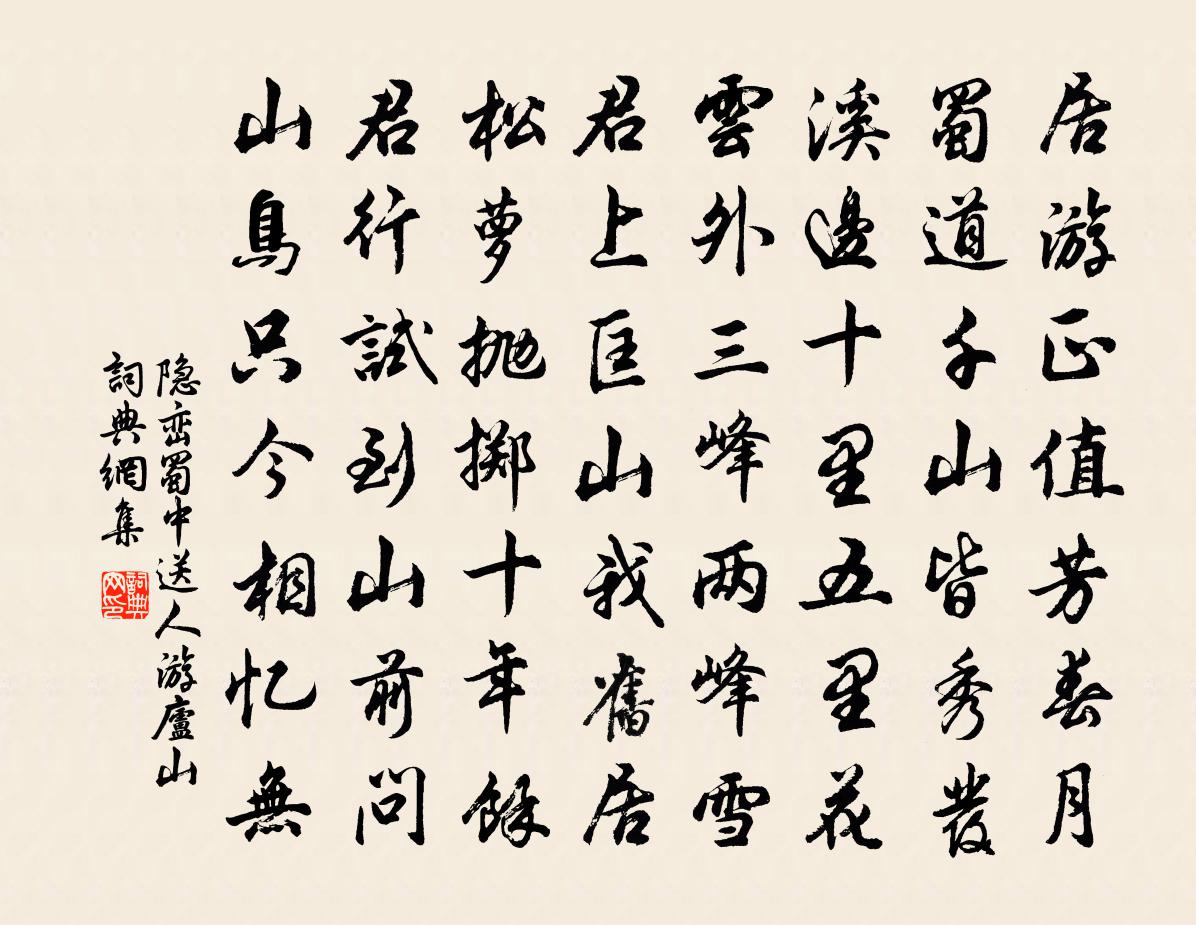 居游正值芳春月
蜀道千山皆秀發
溪邊十里五里花
雲外三峰两峰雪
君上匡山我舊居
松萝抛掷十年餘
君行試到山前問
山鳥只今相忆無
隐峦蜀中送人游廬山
詞典網集
詞典网印